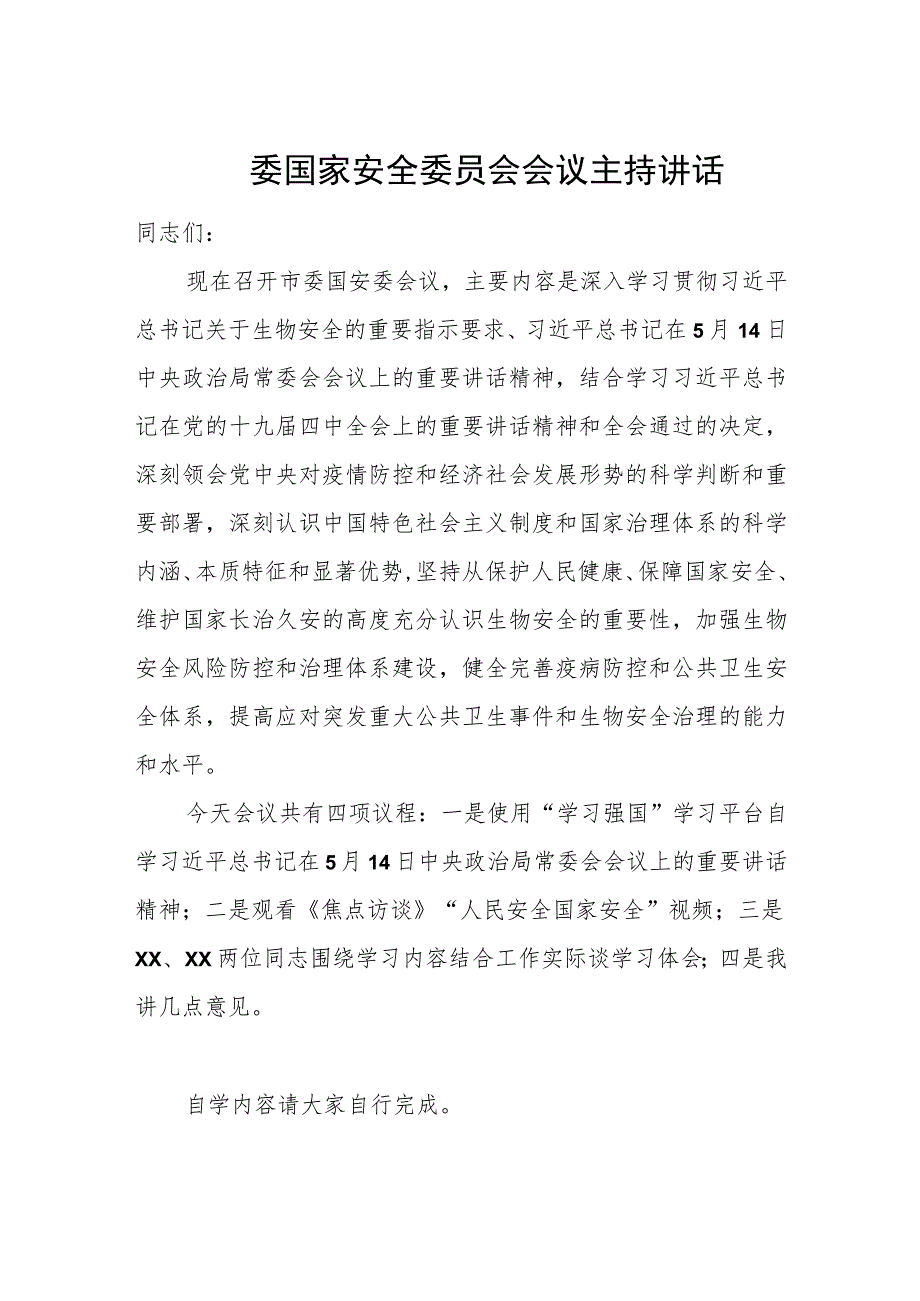 委国家安全委员会会议主持讲话
同志们：
现在召开市委国安委会议，主要内容是深入学习贯彻习近平
总书记关于生物安全的重要指示要求、习近平总书记在5月14日
中央政治局常委会会议上的重要讲话精神，结合学习习近平总书
记在党的十九届四中全会上的重要讲话精神和全会通过的决定，
深刻领会党中央对疫情防控和经济社会发展形势的科学判断和重
要部署，深刻认识中国特色社会主义制度和国家治理体系的科学
内涵、本质特征和显著优势,坚持从保护人民健康、保障国家安全、
维护国家长治久安的高度充分认识生物安全的重要性，加强生物
安全风险防控和治理体系建设，健全完善疫病防控和公共卫生安
全体系，提高应对突发重大公共卫生事件和生物安全治理的能力
和水平。
今天会议共有四项议程：一是使用“学习强国”学习平台自
学习近平总书记在5月14日中央政治局常委会会议上的重要讲话
精神；二是观看《焦点访谈》“人民安全国家安全”视频；三是
XX、XX两位同志围绕学习内容结合工作实际谈学习体会；四是我
讲几点意见。
自学内容请大家自行完成。